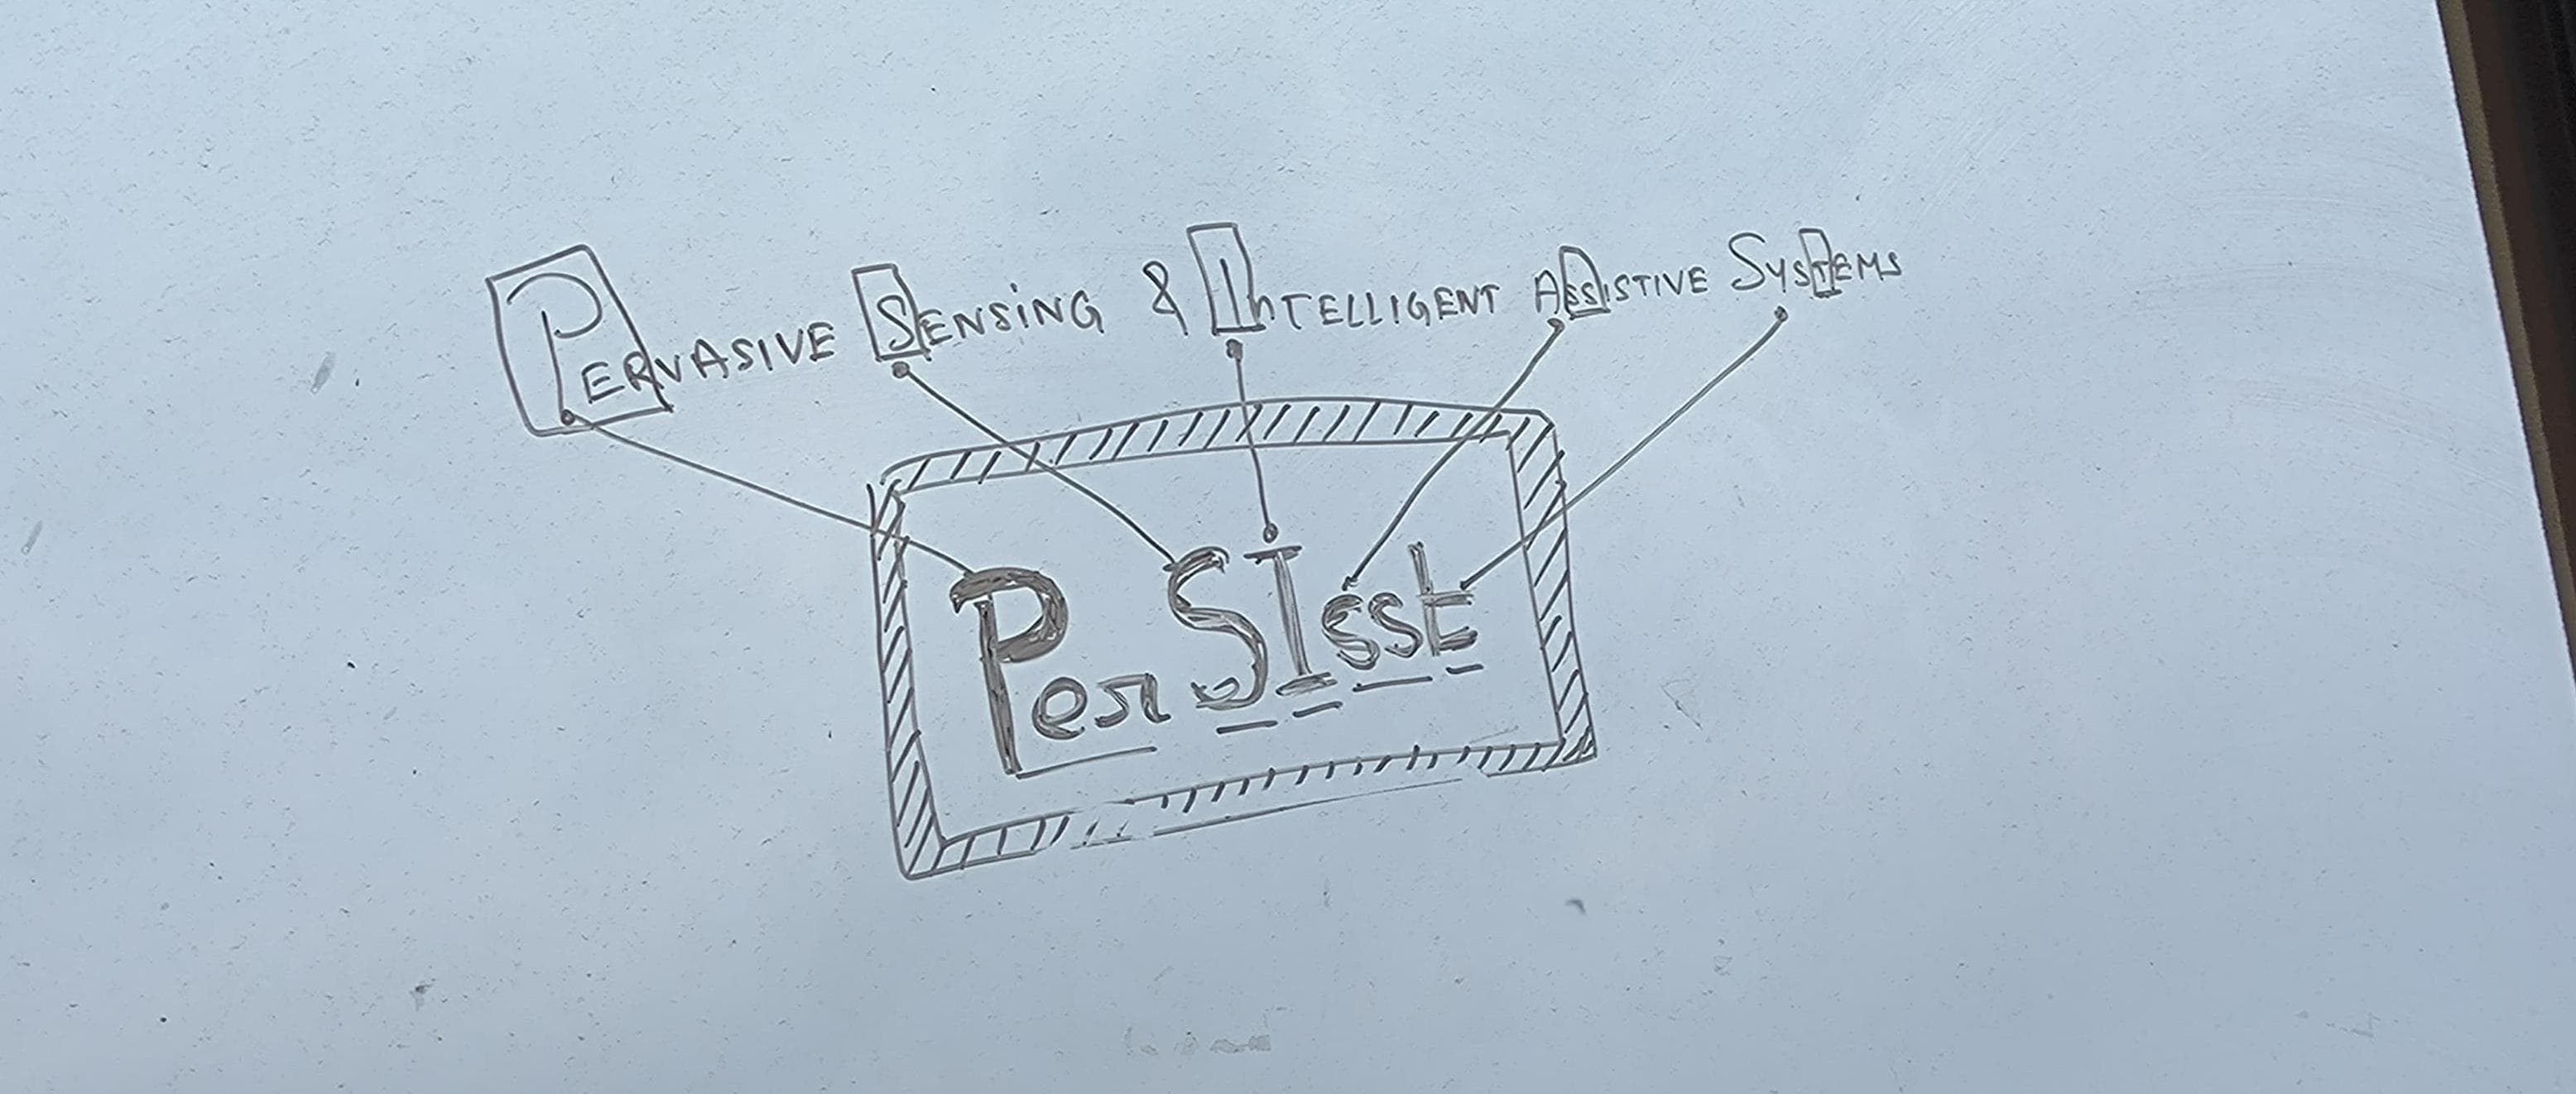 PERVASIVE SENSING & INTELLIGENT ASSISTIVE SYSTEMS
PerSIsst